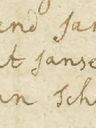 end Jan
t Janse
an Sch